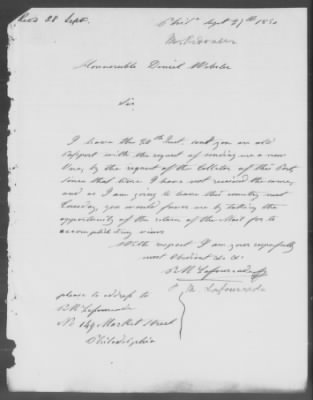 Rec'd 28 Sept.
Phil'a Sept 27th 1850
Honnorable Daniel Webster
Sir
I have the 20th Inst. sent you an old
Passport with the request of sending me a new
One, by the request of the Collector of this Port,
since that time I have not received the same,
and as I am going to leave this country next
Tuesday, you would favor me by taking the
opportunity of the return of the Mail for to
accomplish my views
With respect I am your respectfully
most Obedient &c &c
P. M. Lafourcade
P. M. Lafourcade
please to address to
P. M. Lafourcade
No 149 Market Street
Philadelphia